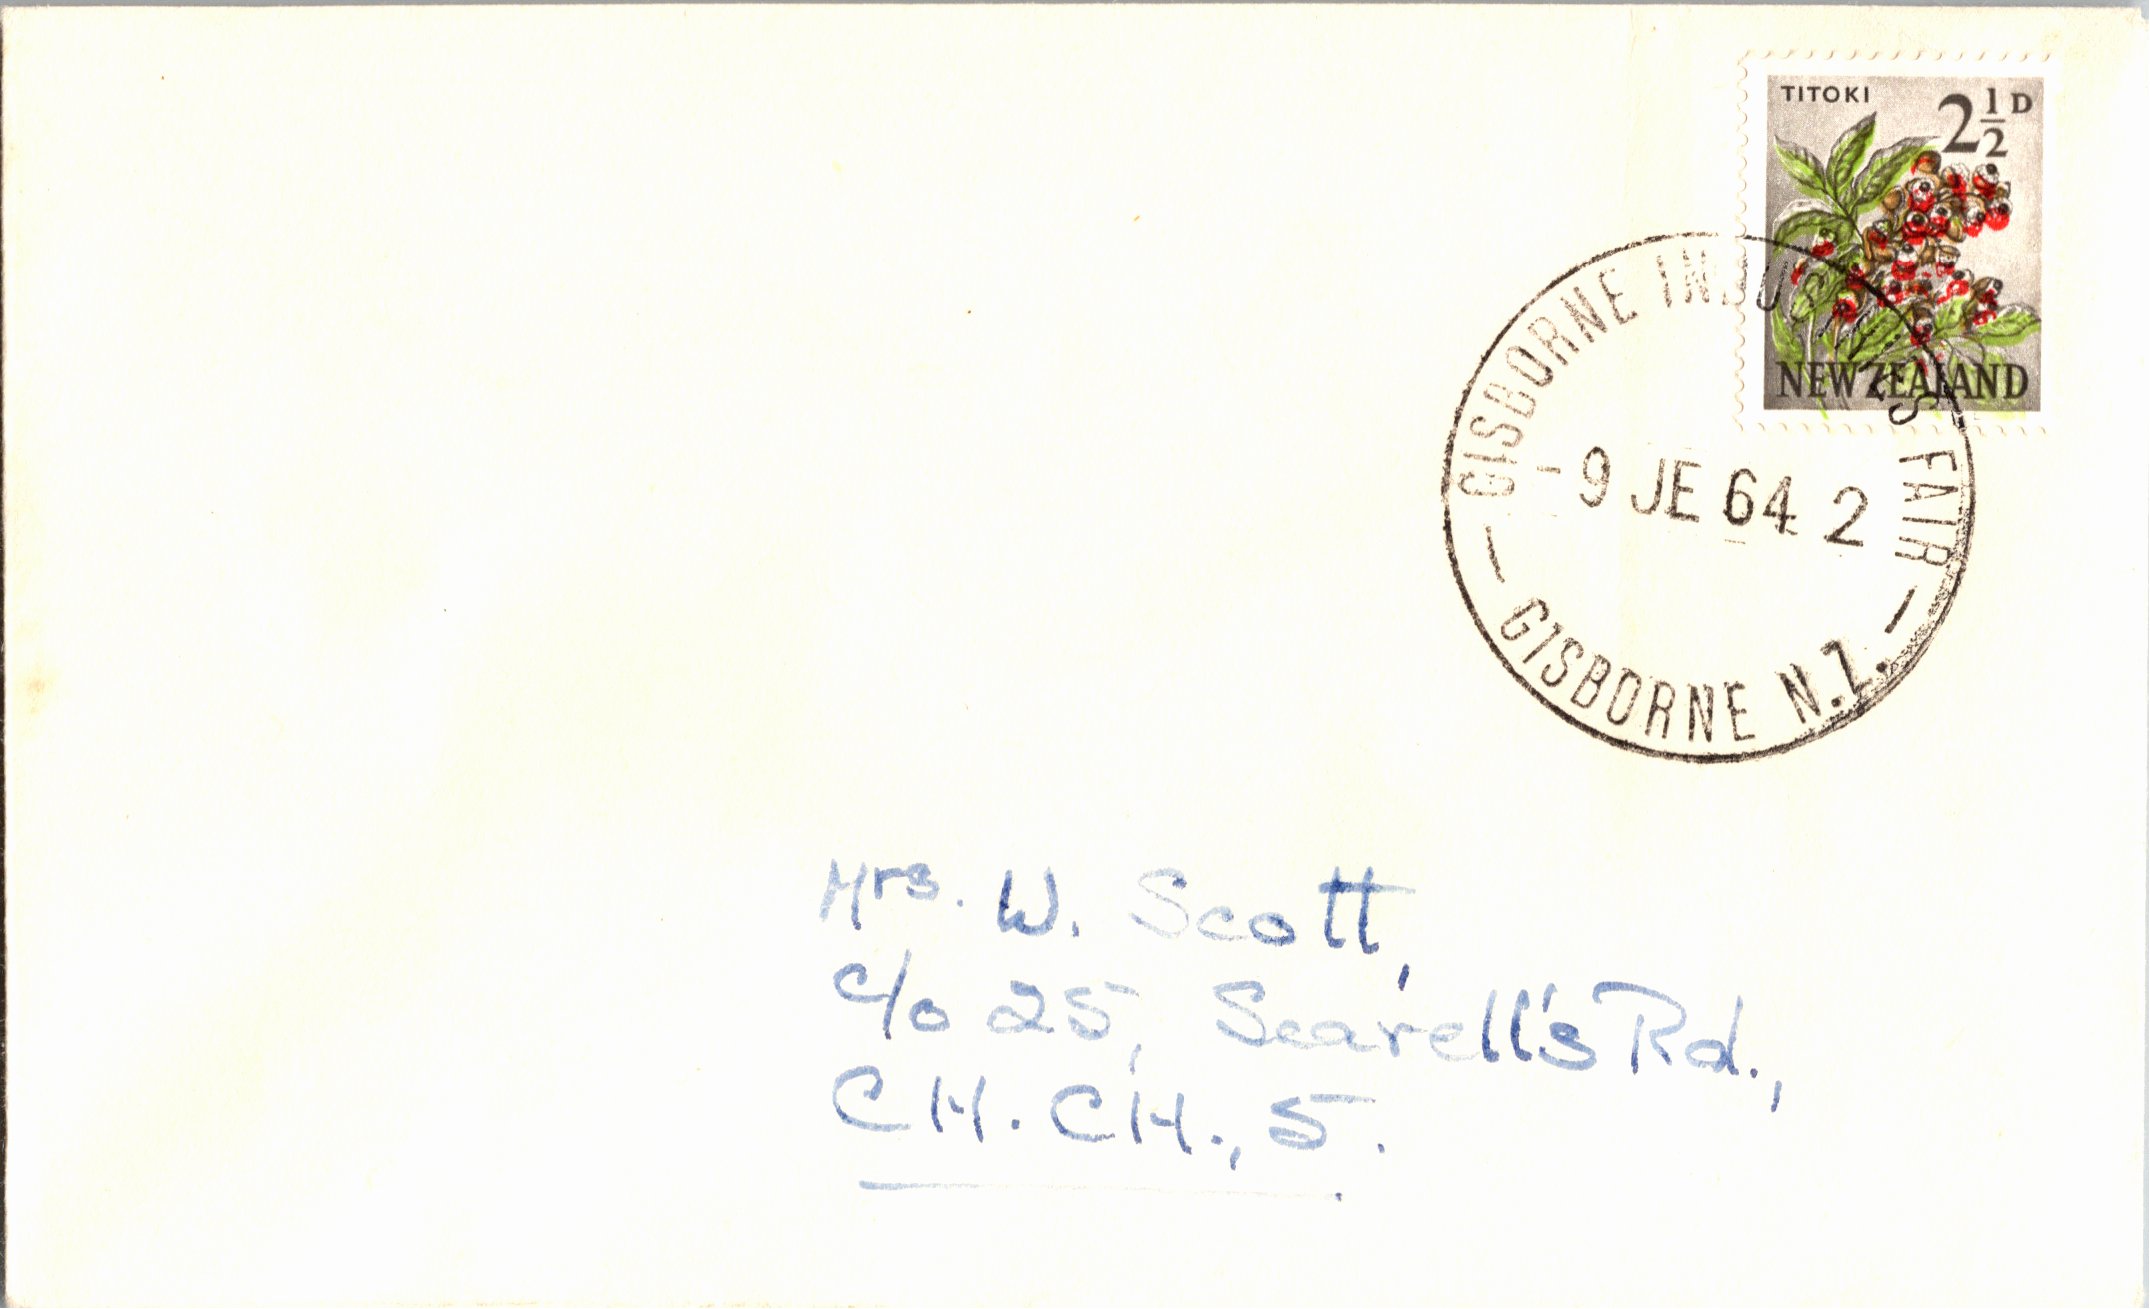 TITOKI
2½D
NEW ZEALAND
— GISBORNE INDUSTRIES FAIR —
-9 JE 64 2
GISBORNE N.Z.
Mrs. W. Scott,
c/o 25, Scarell's Rd.,
CH. CH., 5.